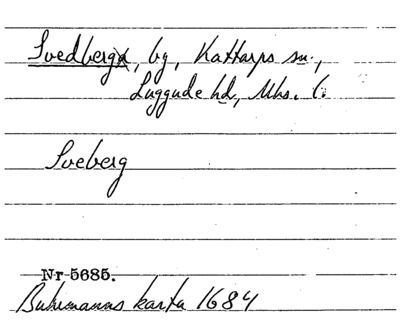 Svedberga, by, Kattarps sn.,
Luggude hd, Mhs. l.
Sveberg
Nr 5685.
Buhrmanns karta 1684